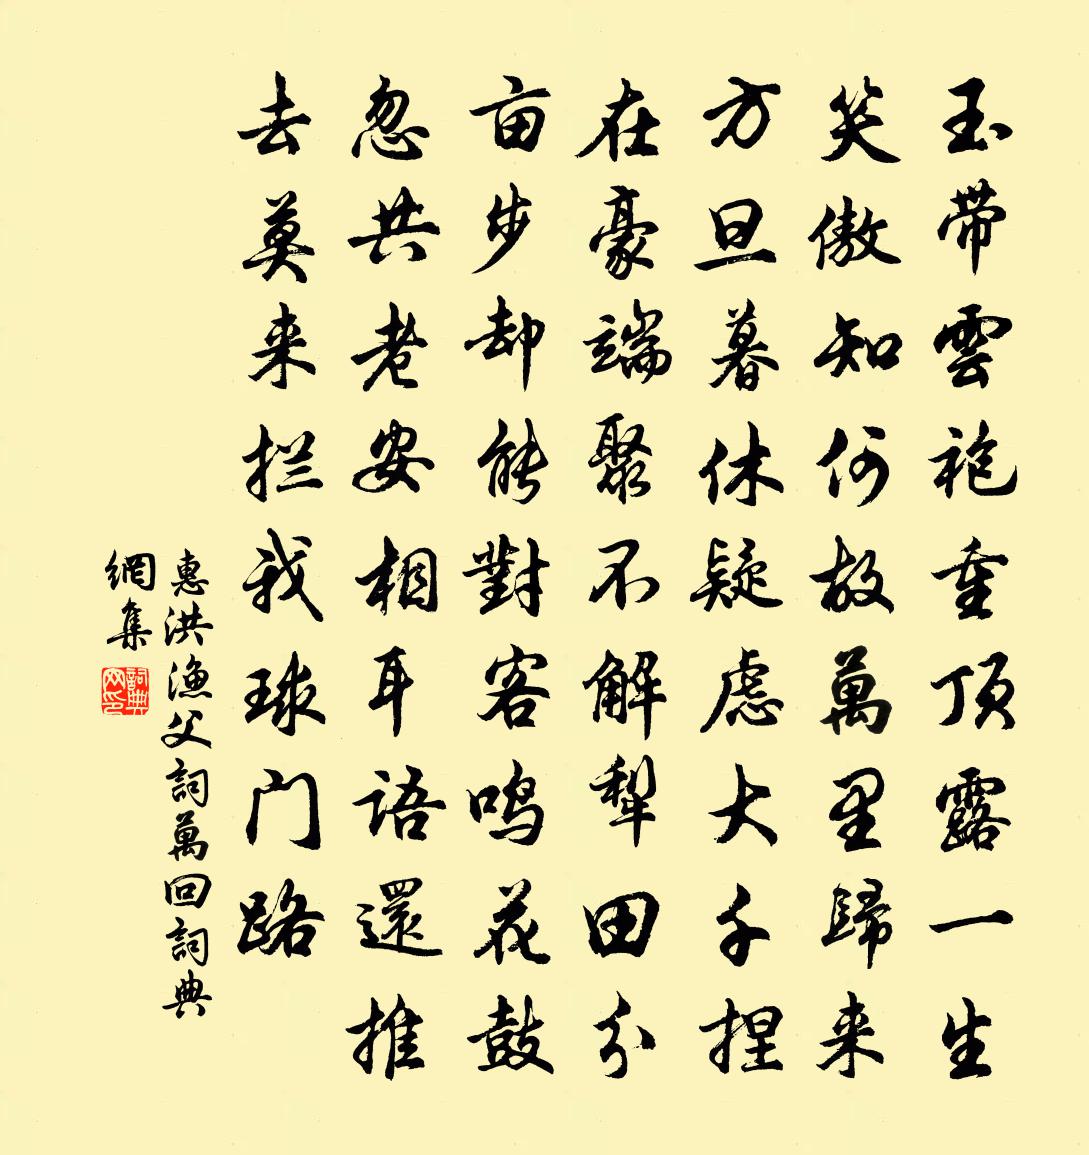 玉带雲袍重顶露一生
笑傲知何故萬里歸来
方旦暮休疑虑大千捏
在豪端聚不解犁田分
亩步却能對客鸣花鼓
忽共老安相耳语還推
去莫来拦我球门路
惠洪渔父詞萬回詞典
網集
詞典
网印